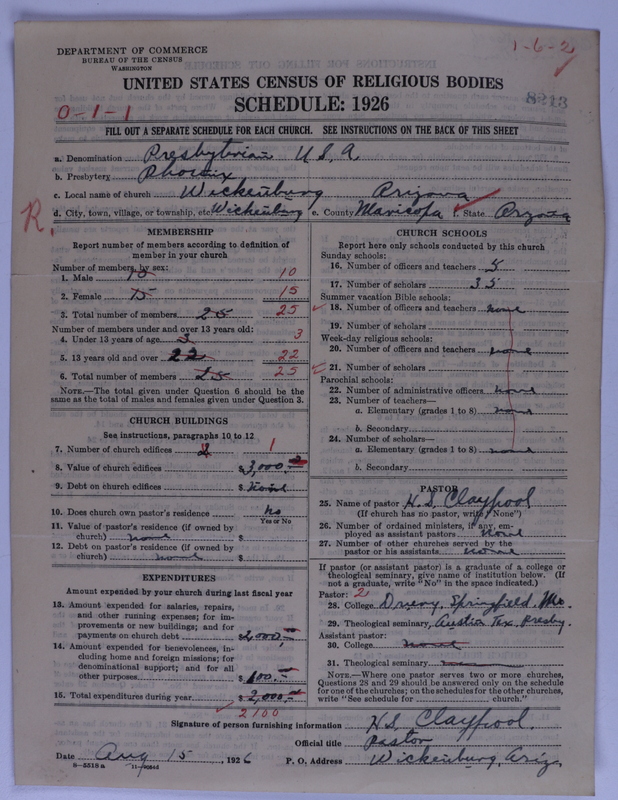 DEPARTMENT OF COMMERCE
BUREAU OF THE CENSUS
WASHINGTON
1-6-2
UNITED STATES CENSUS OF RELIGIOUS BODIES
SCHEDULE: 1926
8213
0-1-1
FILL OUT A SEPARATE SCHEDULE FOR EACH CHURCH. SEE INSTRUCTIONS ON THE BACK OF THIS SHEET
a. Denomination Presbyterian U.S.A.
b. Presbytery Phoenix
c. Local name of church Wickenburg Arizona
d. City, town, village, or township, etc Wickenburg e. County Maricopa f. State Arizona
R.
MEMBERSHIP
Report number of members according to definition of
member in your church
Number of members, by sex:
1. Male 10 10
2. Female 15 15
3. Total number of members 25 25
Number of members under and over 13 years old:
4. Under 13 years of age 3 3
5. 13 years old and over 22 22
6. Total number of members 25 25
NOTE.—The total given under Question 6 should be the
same as the total of males and females given under Question 3.
CHURCH BUILDINGS
See instructions, paragraphs 10 to 12
7. Number of church edifices 2 1
8. Value of church edifices $3,000.
9. Debt on church edifices $ None
10. Does church own pastor's residence No
Yes or No
11. Value of pastor's residence (if owned by
church) none $
12. Debt on pastor's residence (if owned by
church) none $
EXPENDITURES
Amount expended by your church during last fiscal year
13. Amount expended for salaries, repairs,
and other running expenses; for im-
provements or new buildings; and for
payments on church debt $2,000.
14. Amount expended for benevolences, in-
cluding home and foreign missions; for
denominational support; and for all
other purposes $100.
15. Total expenditures during year $2,000.
2100
CHURCH SCHOOLS
Report here only schools conducted by this church
Sunday schools:
16. Number of officers and teachers 5
17. Number of scholars 35
Summer vacation Bible schools:
18. Number of officers and teachers none
19. Number of scholars
Week-day religious schools:
20. Number of officers and teachers none
21. Number of scholars
Parochial schools:
22. Number of administrative officers none
23. Number of teachers—
a. Elementary (grades 1 to 8) none
b. Secondary
24. Number of scholars—
a. Elementary (grades 1 to 8) none
b. Secondary
PASTOR
25. Name of pastor H. S. Claypool
(If church has no pastor, write "None")
26. Number of ordained ministers, if any, em-
ployed as assistant pastors none
27. Number of other churches served by the
pastor or his assistants none
If pastor (or assistant pastor) is a graduate of a college or
theological seminary, give name of institution below. (If
not a graduate, write "No" in the space indicated.)
Pastor: 2
28. College Drury, Springfield, Mo.
29. Theological seminary, Austin Tex. Presby.
Assistant pastor:
30. College none
31. Theological seminary
NOTE.—Where one pastor serves two or more churches,
Questions 28 and 29 should be answered only on the schedule
for one of the churches; on the schedules for the other churches,
write "See schedule for church."
Signature of person furnishing information H.S. Claypool.
Official title Pastor
Date Aug 15, 1926 P. O. Address Wickenburg, Ariz.
8-5518 a